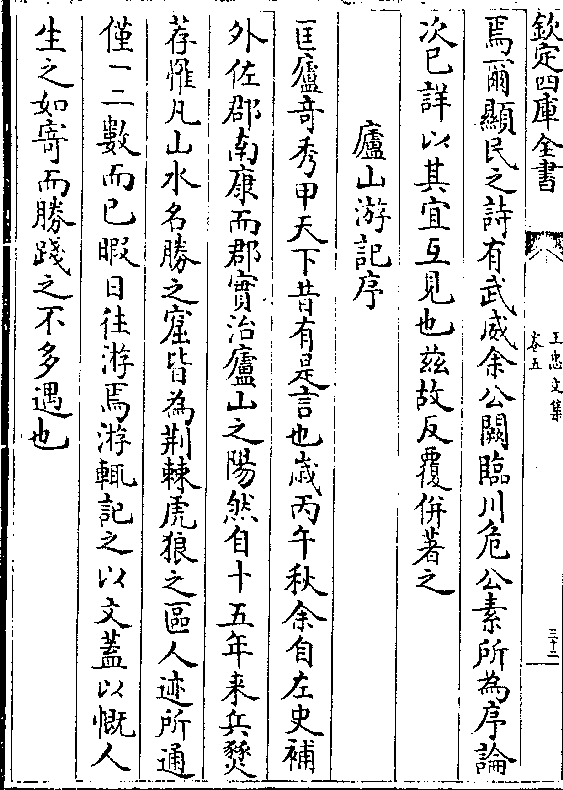 欽定四庫全書
王忠文集
卷五
三十二
焉爾顯民之詩有武威余公闕臨川危公素所為序論
次已詳以其宜互見也茲故反覆併著之
廬山游記序
匡廬竒秀甲天下昔有是言也歲丙午秋余自左史補
外佐郡南康而郡實治廬山之陽然自十五年来兵燹
荐罹凡山水名勝之窟皆為荆棘虎狼之區人迹所通
僅一二數而已暇日往游焉游輒記之以文蓋以慨人
生之如寄而勝踐之不多遇也